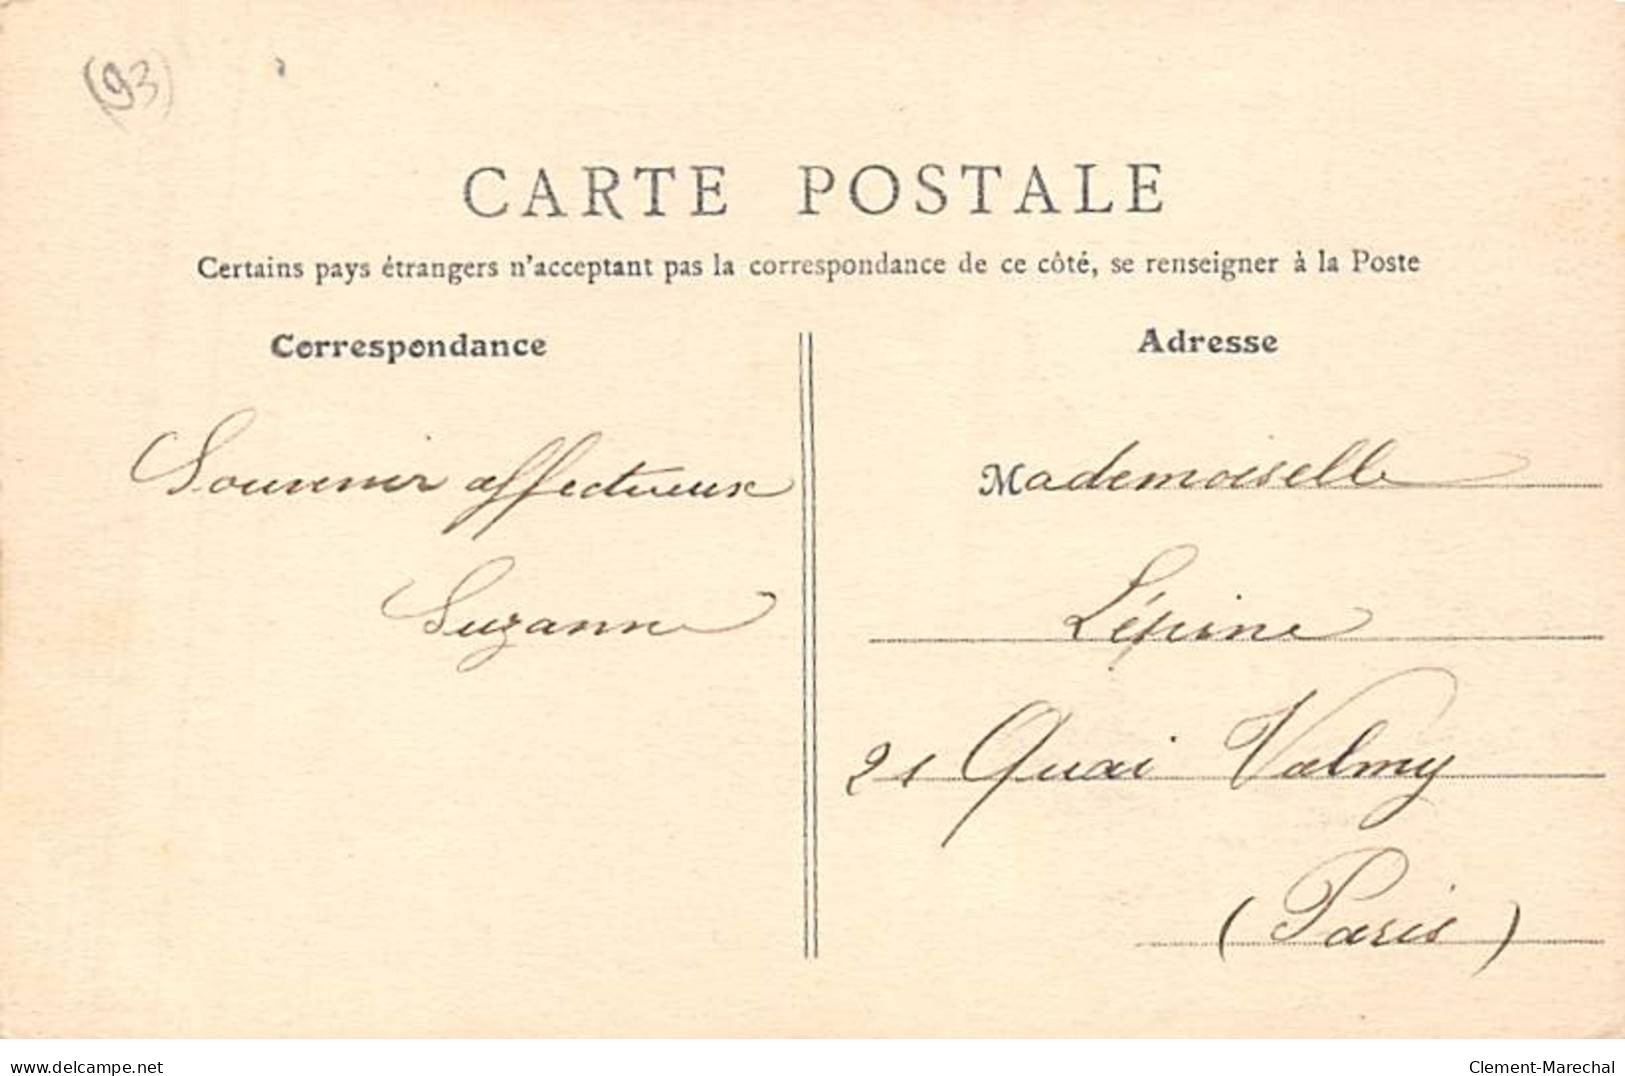 (93)
CARTE POSTALE
Certains pays étrangers n'acceptant pas la correspondance de ce côté, se renseigner à la Poste
Correspondance
Souvenir affectueux
Suzanne
Adresse
Mademoiselle
Lépine
21 Quai Valmy
(Paris)
delcampe.net
Clement-Marechal